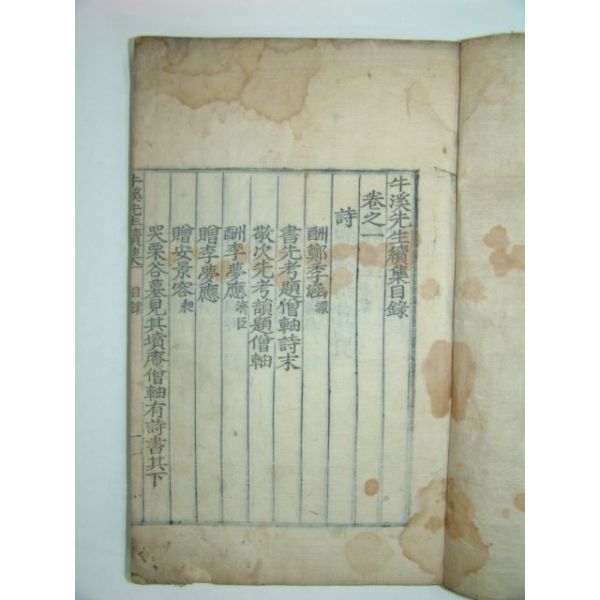 牛溪先生續集目錄
卷之一
詩
酬鄭季涵澈
書先考題僧軸詩末
敬次先考韻題僧軸
酬李夢應濟臣
贈李夢應
贈安景容昶
哭栗谷墓見其墳庵僧軸有詩書其下
牛溪先生續集 目錄 一